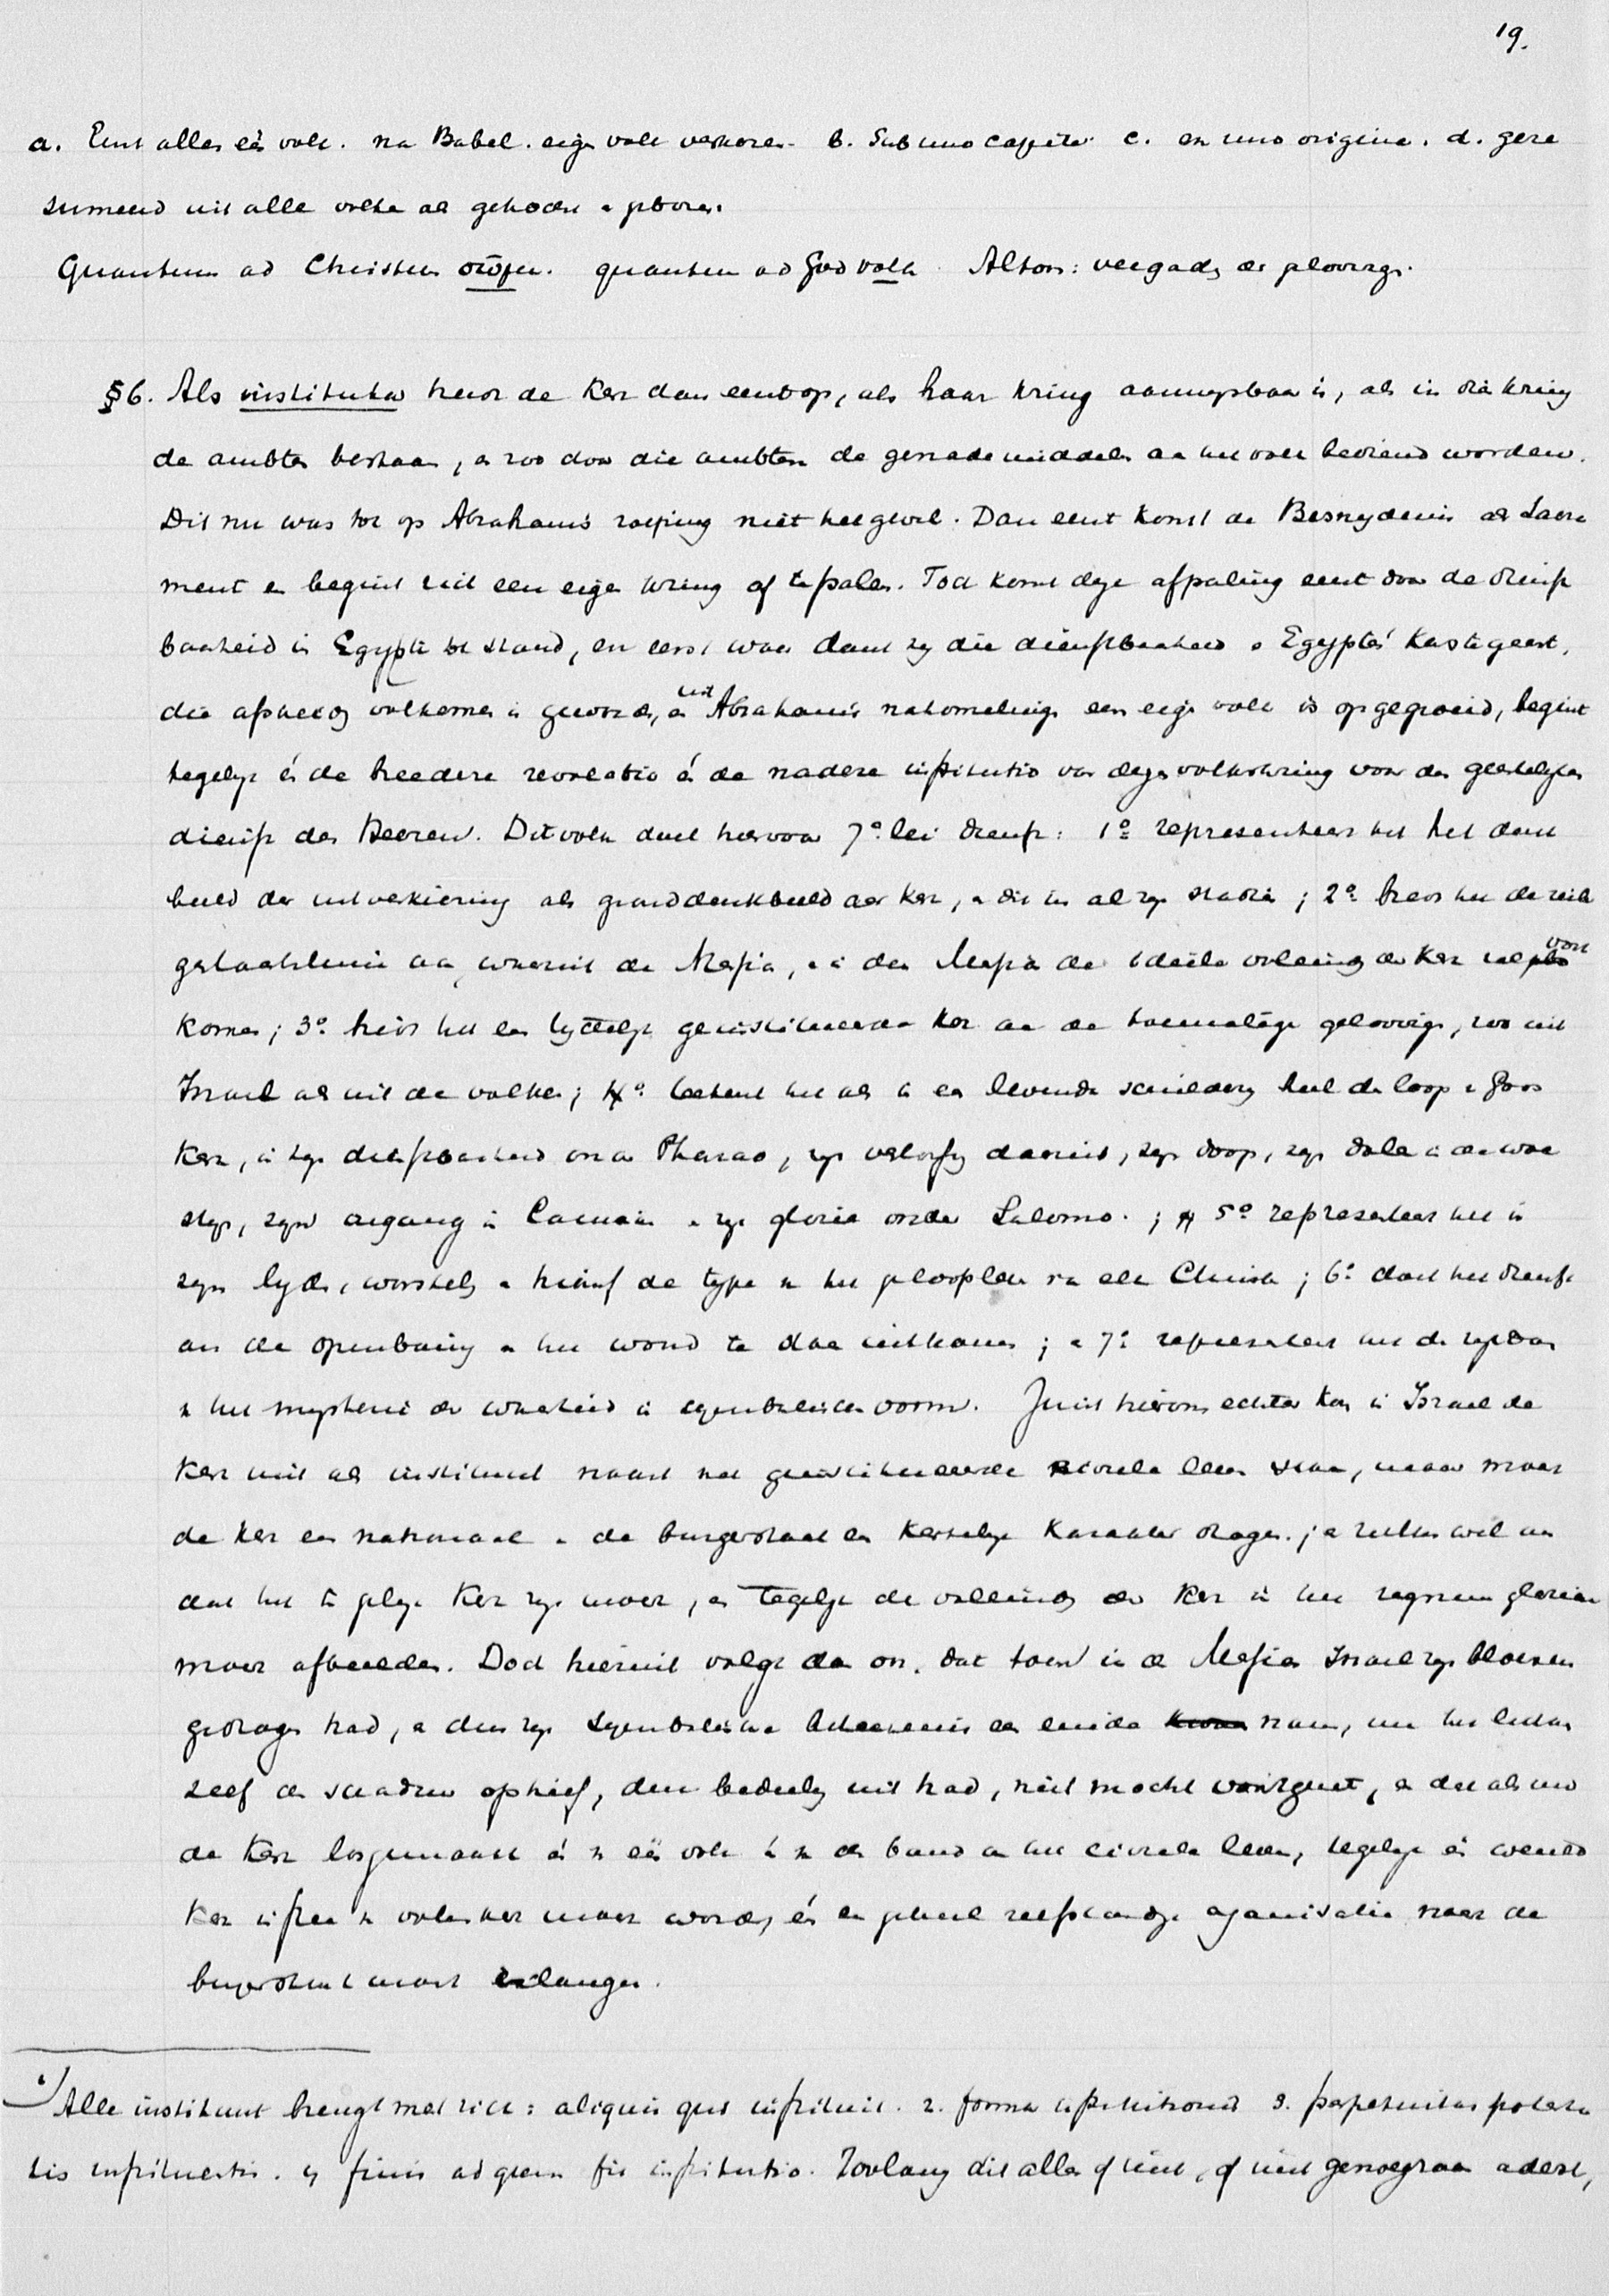 19.
a. Eerst alles één volk. na Babel. eigen volk verkoren. b. Sub uno capite c. ex uno origine. d. gere
sumeerd uit alle volken als gekochte en geboren.
Quantum ad Christum σῶμα. quantum ad God volk Altoos: vergadering der geloovigen.
§6. Als institutum treedt de Kerk dan eerst op, als haar kring aanwijsbaar is, als in die kring
de ambten bestaan, en zoo door die ambten de genademiddelen aan het volk bediend worden.
Dit nu was tot op Abrahams roeping niet het geval. Dan eerst komt de Besnydenis als Sacra
ment en begint zich een eigen kring af te palen. Toch komt deze afpaling eerst door de dienst
baarheid in Egypte tot stand, en eerst waar dank zij die dienstbaarheid en Egypte's kastegeest,
die afscheiding volkomen is geworden, en uit Abrahams nakomelingen een eigen volk is opgegroeid, begint
tegelijk én de breedere revelatio én de nadere institutio van dezen volkskring voor den geestelijken
dienst des Heeren. Dit volk doet hiervoor 7º lei dienst: 1º representeert het het denk
beeld der uitverkiezing als gronddenkbeeld der Kerk, en dit in al zijn stadiën; 2º biedt het de reile
geslachtslinie aan, waaruit de Messias, en in den Messias de ideëele voleinding der Kerk zal voort
komen; 3º biedt het een tijdelijk geïnstitueerde Kerk aan de toenmalige geloovigen, zoo uit
Israel als uit de volken; 4º teekent het als in een levende schilderij heel den loop van Gods
Kerk, in haar dienstbaarheid onder Pharao, zijn verlossing daaruit, zijn doop, zijn dolen in de woe
stijn, zijn ingang in Canaän en zijn glorie onder Salomo.; 5º representeert het in
zijn lijden, worstelen en triomf de type van het geloofsleven van elken Christen; 6º doet het dienst
om de openbaring en het woord te doen uitkomen; en 7º representeert het den rijkdom
van het mysterie der waarheid in symbolischen vorm. Juist hierom echter kon in Israel de
Kerk niet als instituut naast het geïnstitueerde civiele leven staan, maar moest
de Kerk een nationaal en de burgerstaat een Kerkelijk karakter dragen; en zulks wel om
dat het tegelijk Kerk zijn moest, en tegelijk de voleinding der Kerk in het regnum gloriae
moest afbeelden. Doch hieruit volgt dan ook, dat toen in den Messias Israel zijn bloesem
gedragen had, en dus zijn symbolische beteekenis een einde nam, nu het lichaam
zelf de schaduw ophief, deze bedeeling uit had, niet mocht voortgezet, en dus alsnu
de Kerk losgemaakt én van één volk én van den band aan het civiele leven, tegelijk én wereld
Kerk in stee van volkskerk moest worden, én een geheel zelfstandige organisatie naast de
burgerstaat moest erlangen.
¹) Alle instituut brengt met zich: aliquis qui instituit. 2. forma institutionis 3. perpetuitas potesta
tis instituentis. 4 finis ad quem fit institutio. Zoolang dit alles of niet, of niet genoegzaam adest,